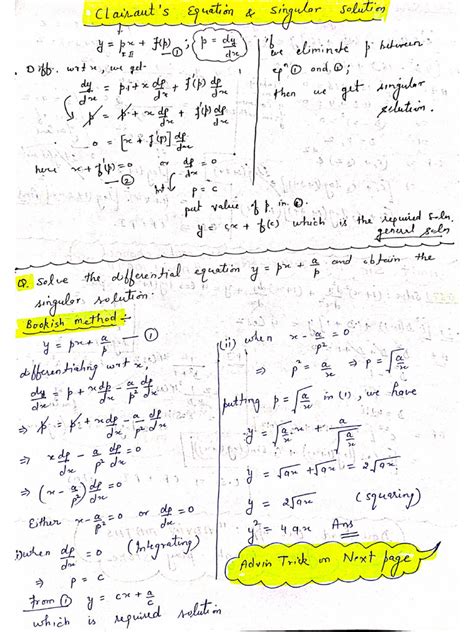 Clairaut's Equation & Singular Solution
y = px + f(p) —① ; { p = dy/dx }
Diff. w.r.t x, we get
dy/dx = p·1 + x dp/dx + f'(p) dp/dx
p = p + x dp/dx + f'(p) dp/dx
0 = [x + f'(p)] dp/dx
here x + f'(p) = 0 or dp/dx = 0
—②
p = c
put value of p in ①.
y = cx + f(c) which is the required Soln.
general soln
If
we eliminate p between
eqn ① and ②;
then we get singular
solution.
Q. Solve the differential equation y = px + a/p and obtain the
singular solution.
Bookish method :-
y = px + a/p —①
differentiating w.r.t x,
dy/dx = p + x dp/dx - a/p² dp/dx
⇒ p = p + x dp/dx - a/p² dp/dx
⇒ x dp/dx - a/p² dp/dx = 0
⇒ (x - a/p²) dp/dx = 0
Either x - a/p² = 0 or dp/dx = 0
i) when dp/dx = 0 (Integrating)
⇒ p = c
from ① y = cx + a/c
which is required solution
(ii) when x - a/p² = 0
⇒ p² = a/x ⇒ p = √a/x
putting p = √a/x in (1), we have
y = √a/x · x + a/√a/x
y = √ax + √ax = 2√ax
y = 2√ax (squaring)
y² = 4ax Ans
Advin Trick on Next page